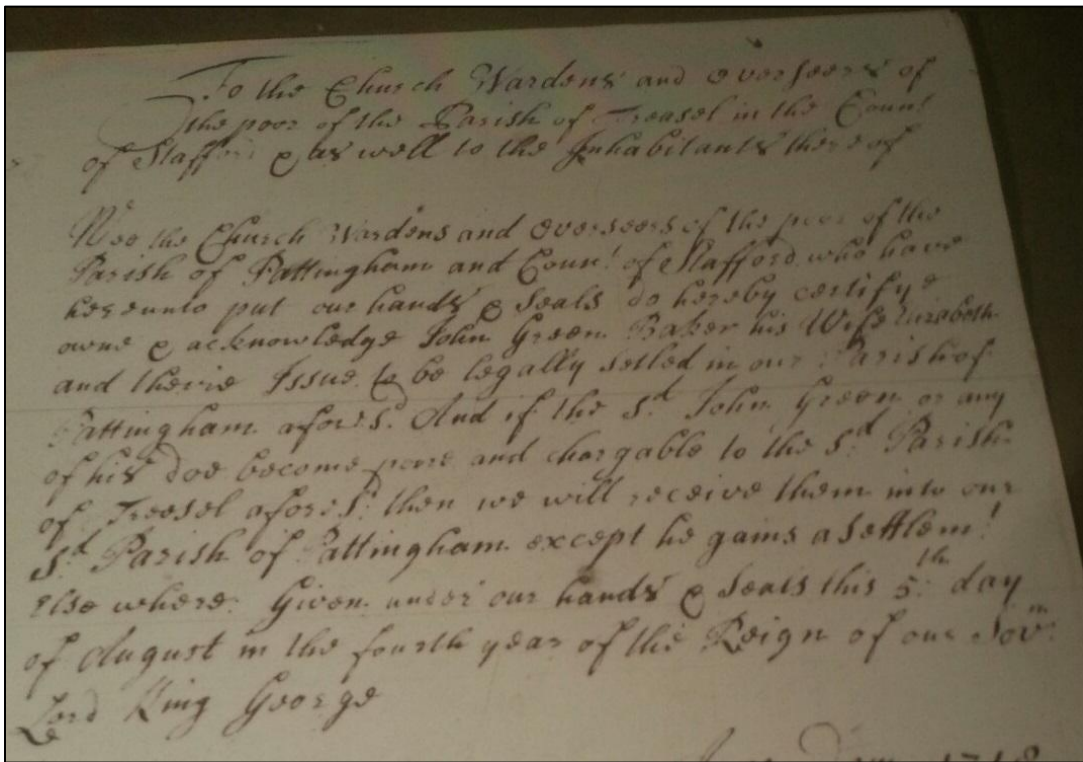 To the Church Wardens and Overseers of
the poor of the Parish of Treasel in the Count
of Stafford & as well to the Inhabitants there of
Wee the Church Wardens and Overseers of the poor of the
Parish of Pattingham and Coun.t of Stafford who have
hereunto put our hands & Seals do hereby certifye
owne & acknowledge John Green Baker his Wife Elizabeth
and theire Issue to be legally setled in our Parish of
Pattingham afores.d And if the S.d John Green or any
of his doe become poore and chargable to the S.d Parish
of Treesel afores.d then we will receive them into our
S.d Parish of Pattingham except he gains a Settlem.t
Else where. Given under our hands & Seals this 5.th day
of August in the fourth year of the Reign of our Sov.rn
Lord King George
1718